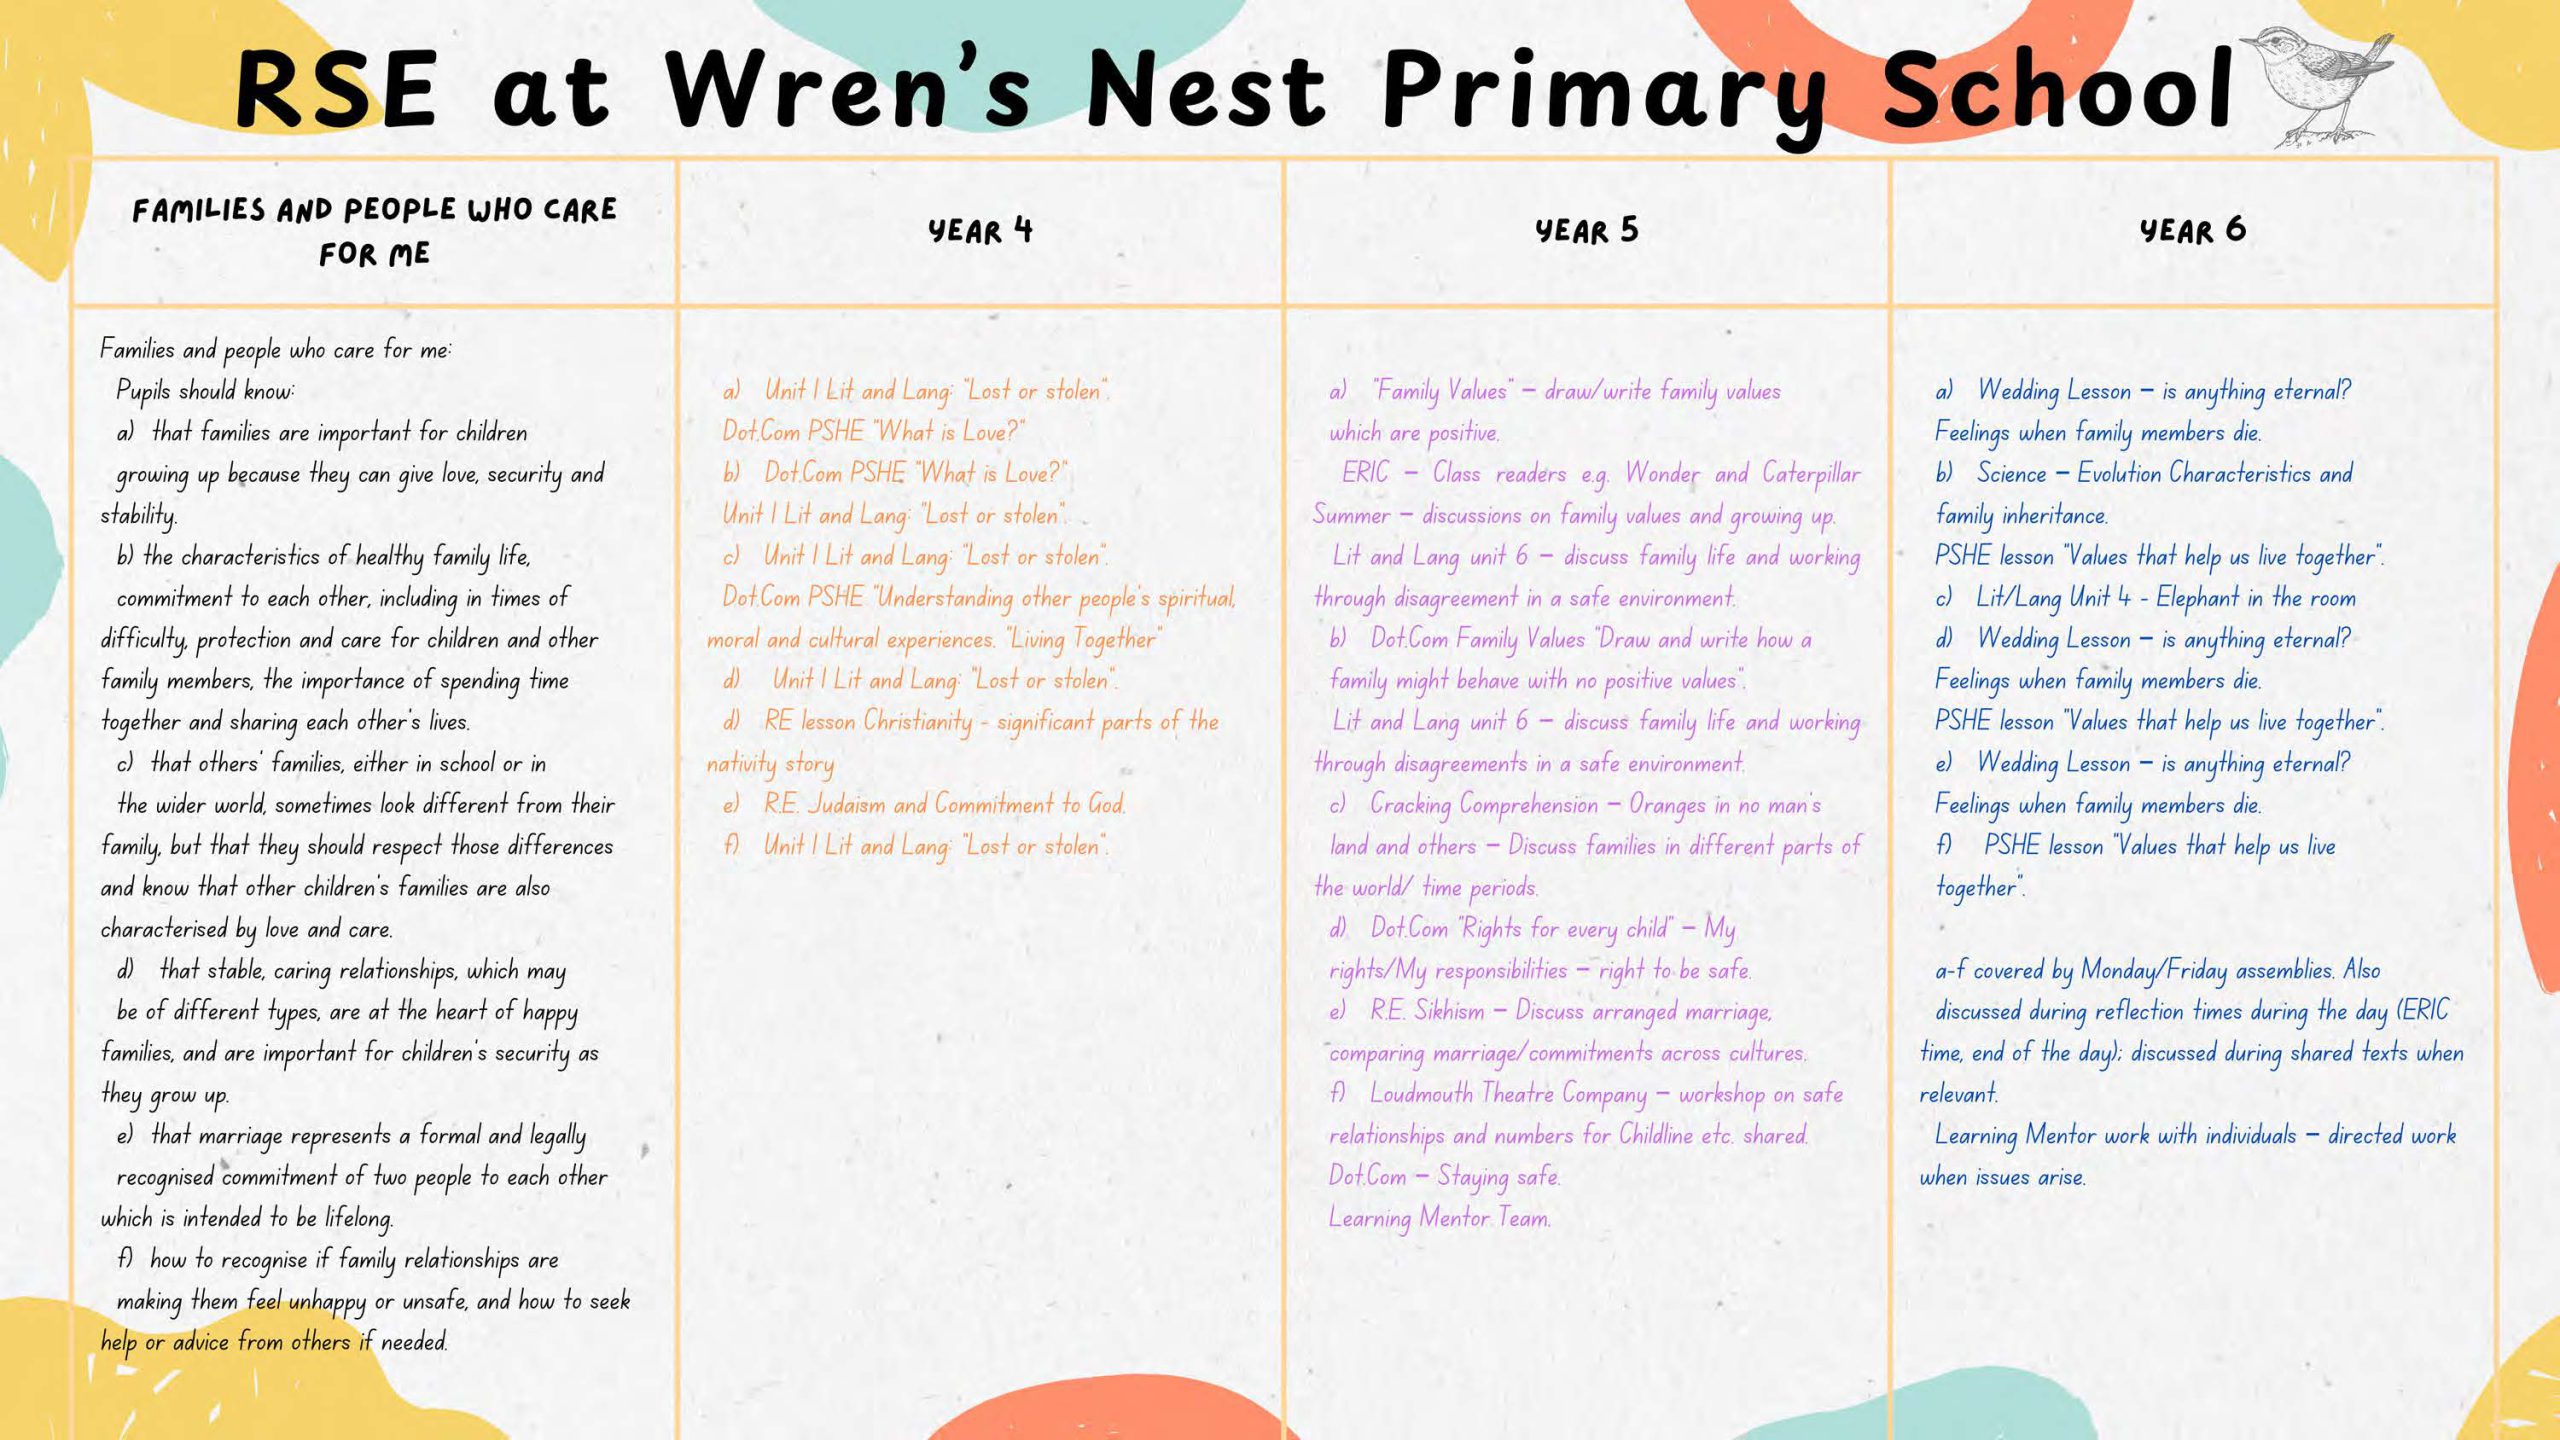 RSE at Wren's Nest Primary School
FAMILIES AND PEOPLE WHO CARE
FOR ME
Families and people who care for me:
Pupils should know:
a) that families are important for children
growing up because they can give love, security and
stability.
b) the characteristics of healthy family life,
commitment to each other, including in times of
difficulty, protection and care for children and other
family members, the importance of spending time
together and sharing each other's lives.
c) that others' families, either in school or in
the wider world, sometimes look different from their
family, but that they should respect those differences
and know that other children's families are also
characterised by love and care.
d) that stable, caring relationships, which may
be of different types, are at the heart of happy
families, and are important for children's security as
they grow up.
e) that marriage represents a formal and legally
recognised commitment of two people to each other
which is intended to be lifelong.
f) how to recognise if family relationships are
making them feel unhappy or unsafe, and how to seek
help or advice from others if needed.
YEAR 4
a) Unit 1 Lit and Lang: "Lost or stolen".
Dot.Com PSHE "What is Love?"
b) Dot.Com PSHE "What is Love?"
Unit 1 Lit and Lang: "Lost or stolen".
c) Unit 1 Lit and Lang: "Lost or stolen".
Dot.Com PSHE "Understanding other people's spiritual,
moral and cultural experiences. "Living Together"
d) Unit 1 Lit and Lang: "Lost or stolen".
d) RE lesson Christianity - significant parts of the
nativity story
e) R.E. Judaism and Commitment to God.
f) Unit 1 Lit and Lang: "Lost or stolen".
YEAR 5
a) "Family Values" – draw/write family values
which are positive.
ERIC – Class readers e.g. Wonder and Caterpillar
Summer – discussions on family values and growing up.
Lit and Lang unit 6 – discuss family life and working
through disagreement in a safe environment.
b) Dot.Com Family Values "Draw and write how a
family might behave with no positive values".
Lit and Lang unit 6 – discuss family life and working
through disagreements in a safe environment.
c) Cracking Comprehension – Oranges in no man's
land and others – Discuss families in different parts of
the world/ time periods.
d) Dot.Com "Rights for every child" – My
rights/My responsibilities – right to be safe.
e) R.E. Sikhism – Discuss arranged marriage,
comparing marriage/commitments across cultures.
f) Loudmouth Theatre Company – workshop on safe
relationships and numbers for Childline etc. shared.
Dot.Com – Staying safe.
Learning Mentor Team.
YEAR 6
a) Wedding Lesson – is anything eternal?
Feelings when family members die.
b) Science – Evolution Characteristics and
family inheritance.
PSHE lesson "Values that help us live together".
c) Lit/Lang Unit 4 - Elephant in the room
d) Wedding Lesson – is anything eternal?
Feelings when family members die.
PSHE lesson "Values that help us live together".
e) Wedding Lesson – is anything eternal?
Feelings when family members die.
f) PSHE lesson "Values that help us live
together".
a-f covered by Monday/Friday assemblies. Also
discussed during reflection times during the day (ERIC
time, end of the day); discussed during shared texts when
relevant.
Learning Mentor work with individuals – directed work
when issues arise.